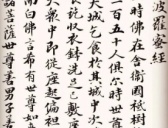 波羅蜜經
在舍衛國祇樹
百五十人俱尒時世尊
大城乞食於其城中次
收衣鉢洗足已敷座
大衆中即從座起偏袒
而白佛言希有世尊如
諸菩薩世尊善男子善